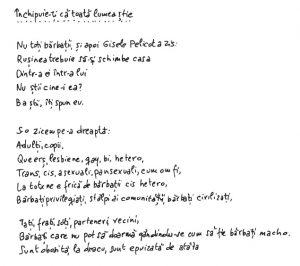 Închipuie-ți că toată lumea știe
Nu toți bărbații, și apoi Gisele Pelicot a zis:
Rușinea trebuie să-și schimbe casa
Dintr-a ei într-a lui
Nu știi cine-i ea?
Ba știi, îți spun eu.
S-o zicem pe-a dreaptă:
Adulți, copii,
Queers, lesbiene, gay, bi, hetero,
Trans, cis, asexuali, pansexuali, cum om fi,
La toți ne e frică de bărbații cis hetero,
Bărbați privilegiați, stâlpi ai comunității, bărbați civilizați,
Tați, frați, soți, parteneri, vecini,
Bărbați care nu pot să doarmă gândindu-se cum să fie bărbați macho.
Sunt obosită la dracu, sunt epuizată de atâta